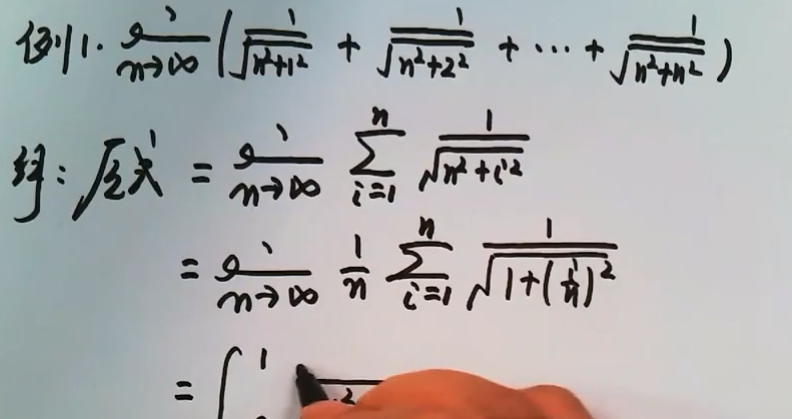 例1. lim n→∞ (1/√(n²+1²) + 1/√(n²+2²) + ⋯ + 1/√(n²+n²))
解: 原式 = lim n→∞ ∑ i=1 n 1/√(n²+i²)
= lim n→∞ 1/n ∑ i=1 n 1/√(1+(i/n)²)
= ∫ 1